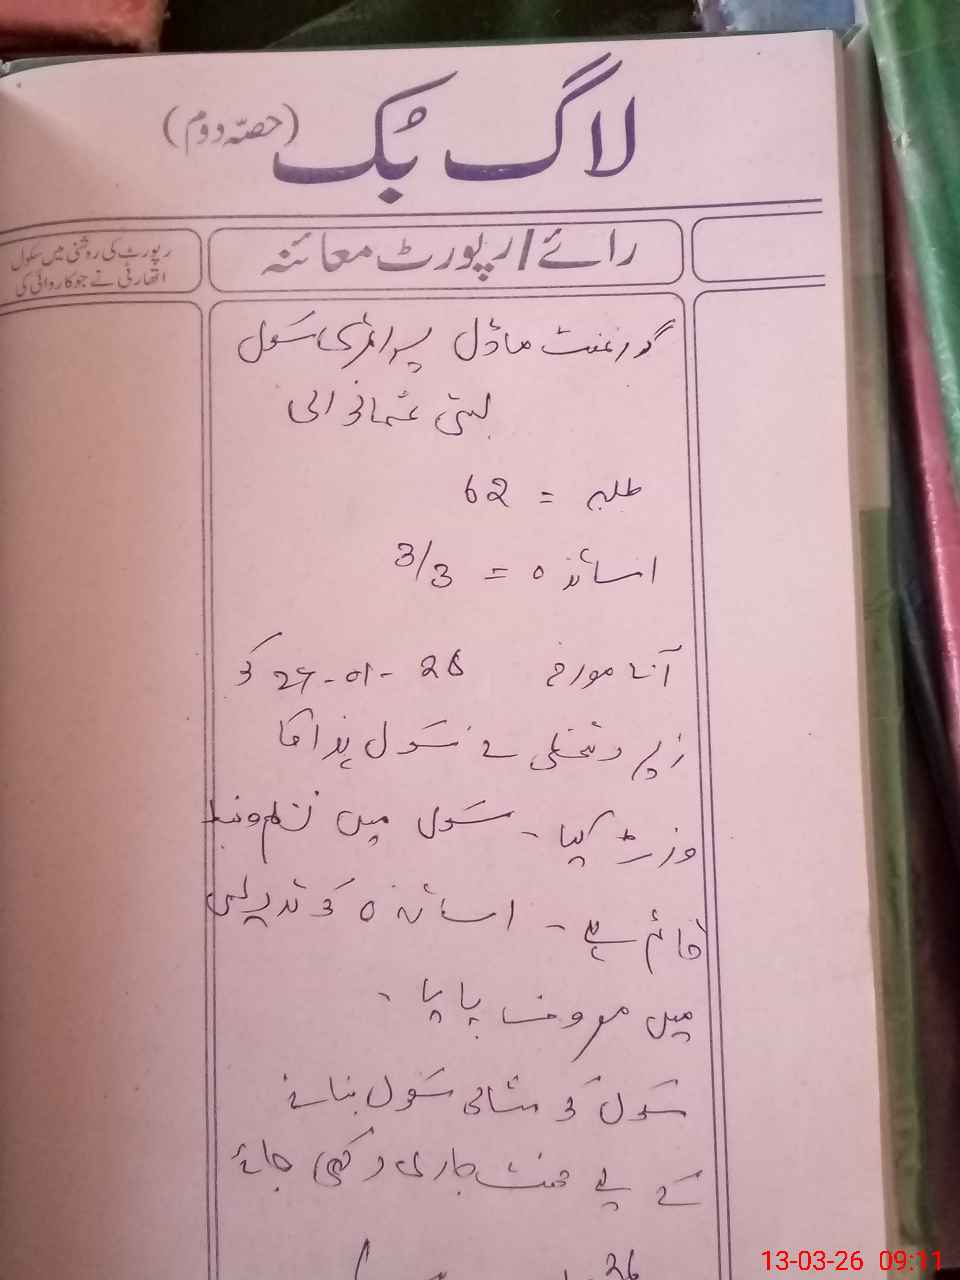 لاگ بُک (حصّہ دوم)
رائے/رپورٹ معائنہ
رپورٹ کی روشنی میں سکول
اتھارٹی نے جو کاروائی کی
گورنمنٹ ماڈل پرائمری سکول
بستی عثمانوالی
طلبہ = 62
اساتذہ = 3/3
آج مورخہ 27-01-26 کو
زیر دستخطی نے سکول ہذا کا
وزٹ کیا - سکول میں نظم و ضبط
قائم ہے - اساتذہ کو تدریس
میں مصروف پایا -
سکول کو مثالی سکول بنانے
کے لیے محنت جاری رکھی جائے
26
13-03-26 09:11